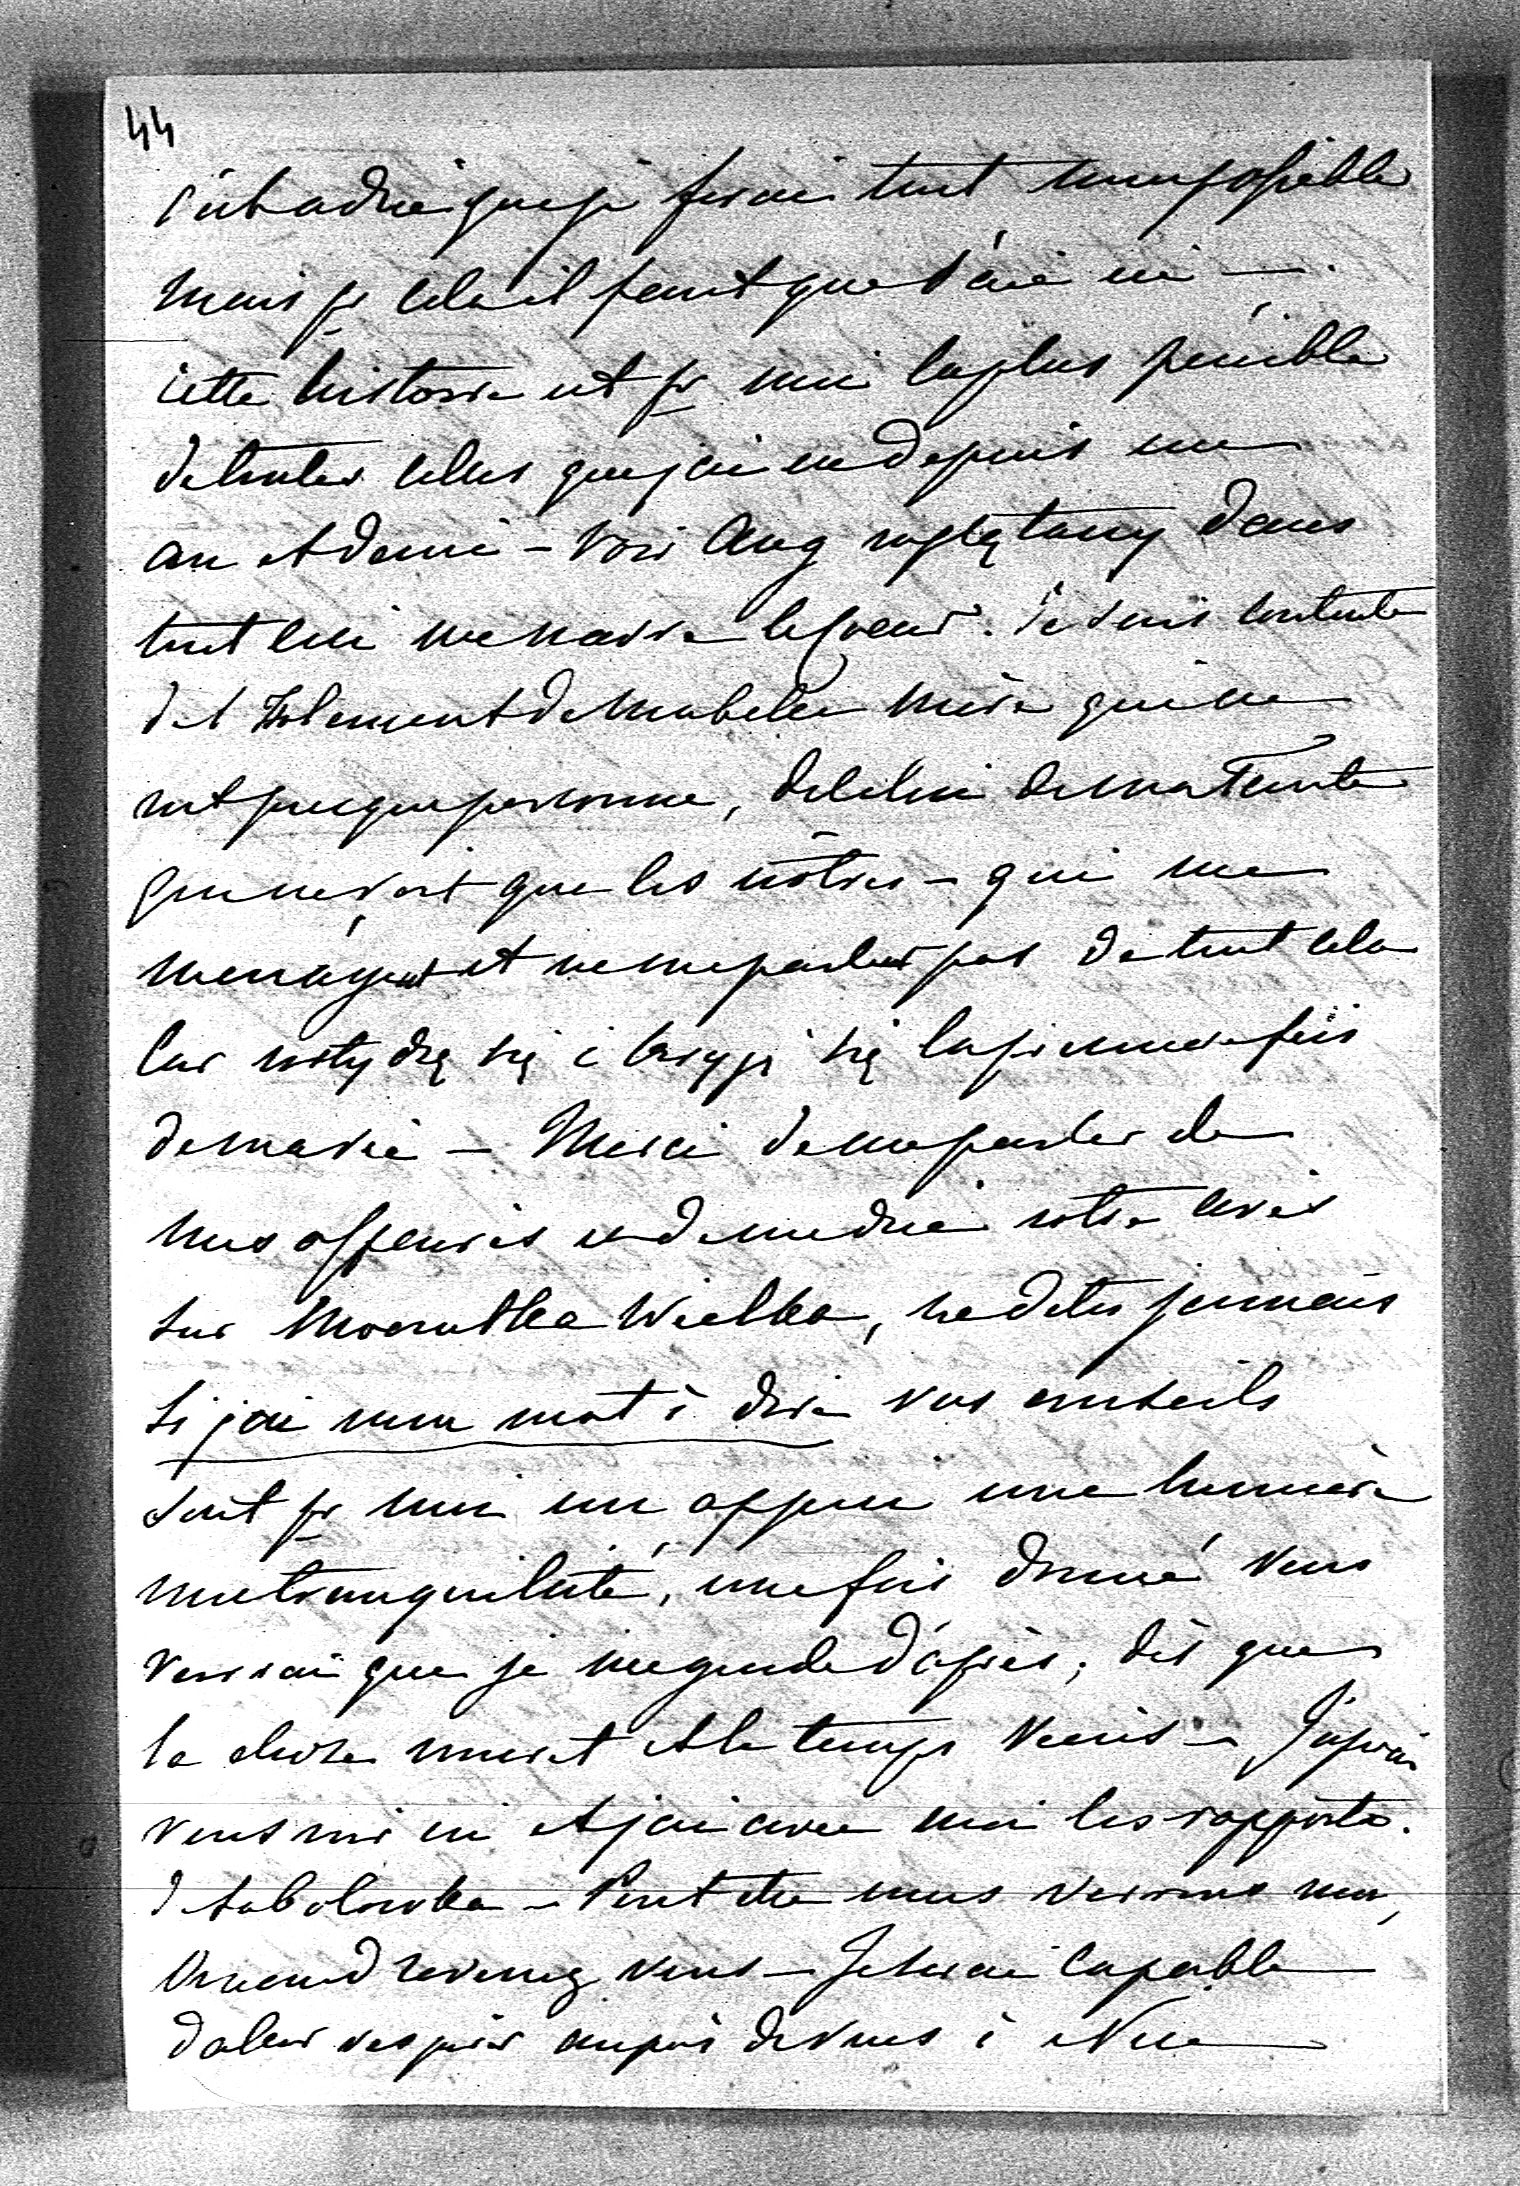 44
c'est a dire que je ferai tout mon possible
mais pr cela il faut que

cette histoire est pr moi la plus penible
de toutes celles que j'ai eu depuis un
an et demi – Voir Aug wplątany dans
tout ceci me navre le coeur. Je suis contente
de l'isolement de ma belle mère qui ne
voit presque personne, de celui de ma Tante
qui ne voit que les nôtres – qui me
menagent et ne me parlent pas de tout cela
Car wstydzę się i się la première fois
de ma vie – Merci de me parler de
nos affaires et de me dire votre avis
sur Moczulka Wielka, ne dites jamais
si j'ai mon mot à dire vos conseils
sont pr moi un appui une lumière
une tranquilité, une fois donné Vous
verrai que je me guide d'après, dès que
la chose murit et le temps Venir – J'espérai
vous voir ici et j'ai avec moi les rapports.
de Sabolowka – Peut etre nous verrons nous,
Quand revenez vous – Je serai capable
d'aller respirer auprès de vous à Nice